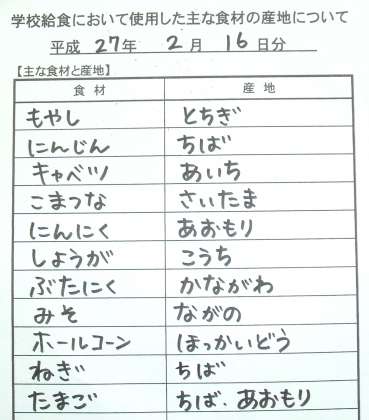 学校給食において使用した主な食材の産地について
平成 27年 2月 16日分
【主な食材と産地】
食材 産地
もやし とちぎ
にんじん ちば
キャベツ あいち
こまつな さいたま
にんにく あおもり
しょうが こうち
ぶたにく かながわ
みそ ながの
ホールコーン ほっかいどう
ねぎ ちば
たまご ちば.あおもり